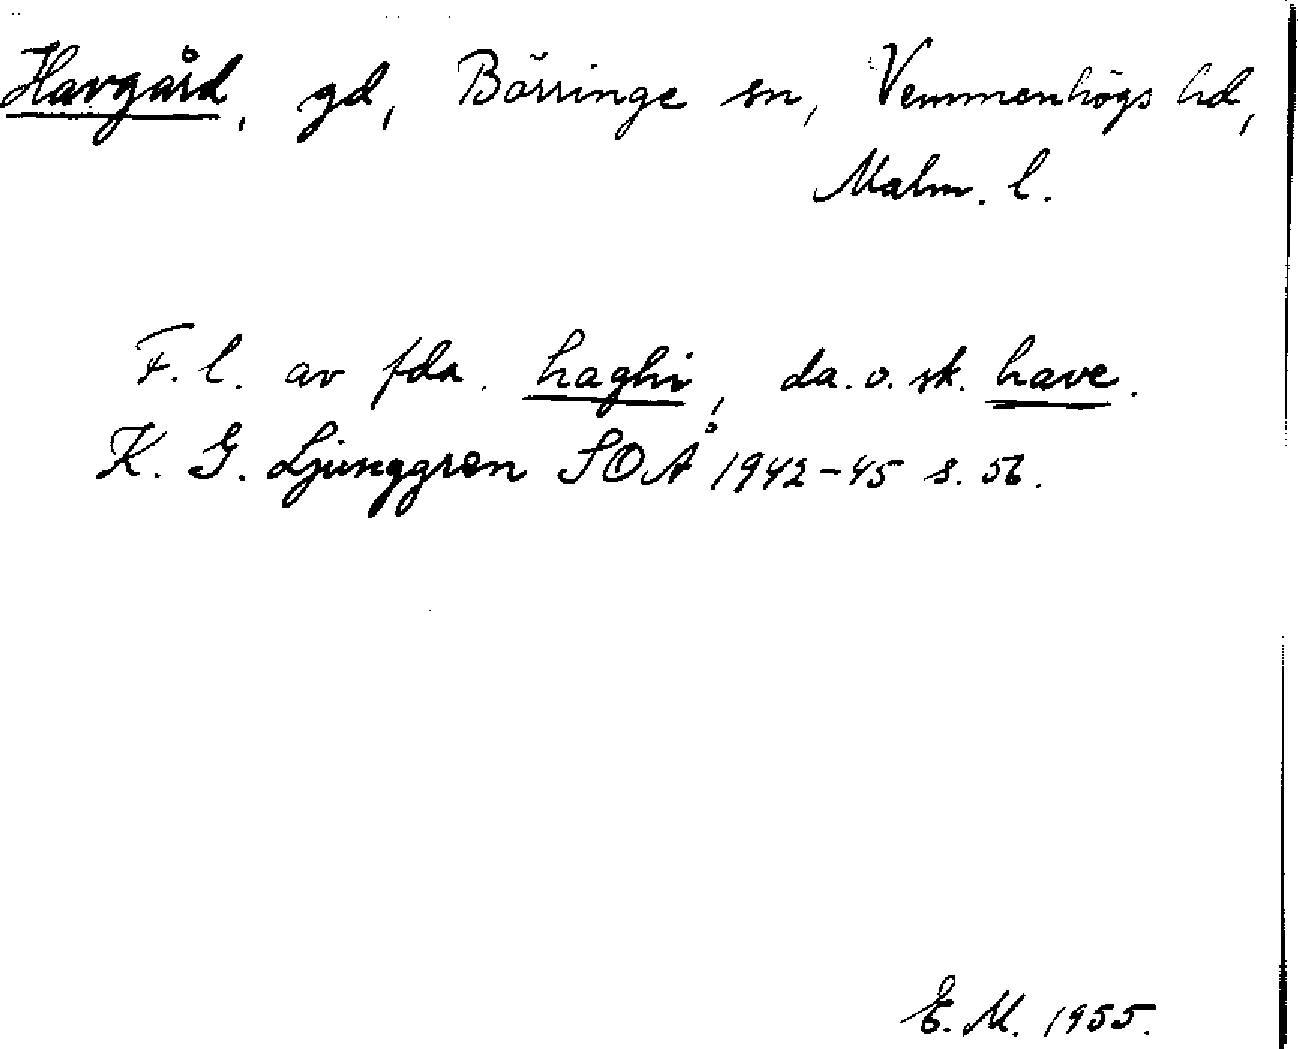 Havgård, gd, Börringe sn, Vemmenhögs hd,
Malm. l.
F. l. av fda. haghi, da. o. sk. have.
K. G. Ljunggren SOÅ 1942-45 s. 56.
E. M. 1955.